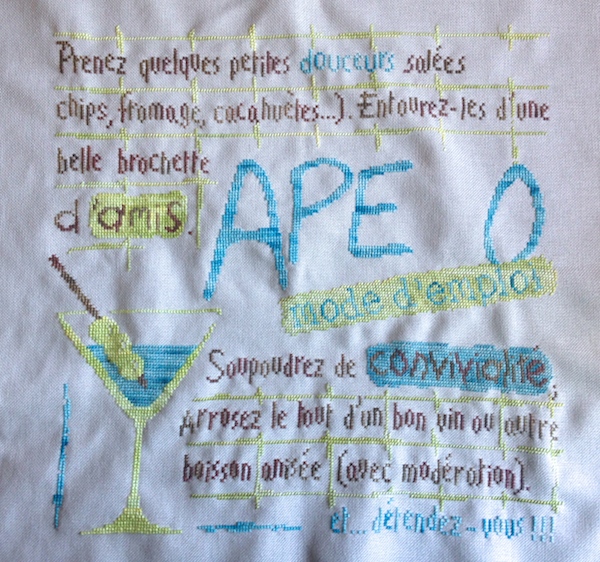 Prenez quelques petites douceurs salées
chips, fromage, cacahuètes...). Entourez-les d'une
belle brochette
d'amis.
APE O
mode d'emploi
Saupoudrez de convivialité,
Arrosez le tout d'un bon vin ou autre
boisson anisée (avec modération).
et... détendez-vous !!!